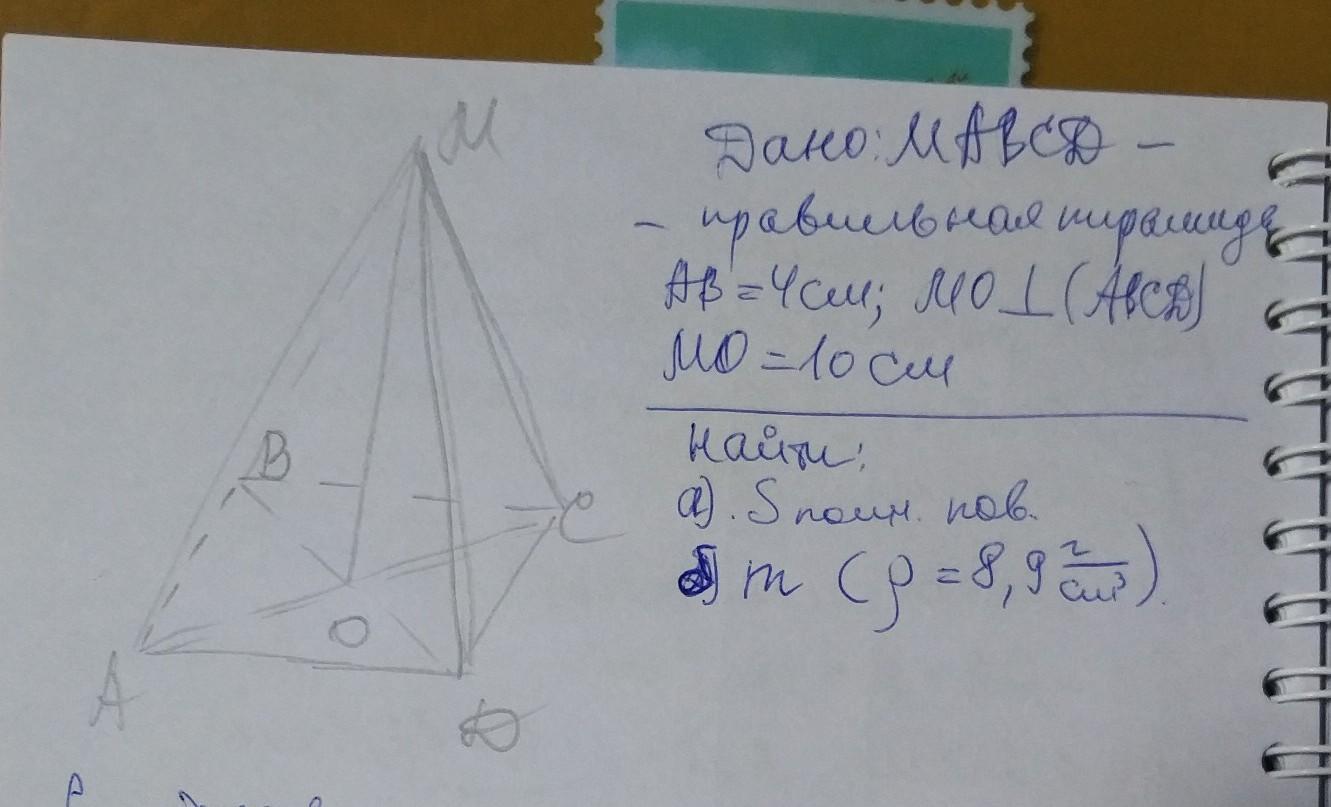 M
Дано: MABCD –
– правильная пирамида
AB = 4 см; MO ⊥ (ABCD)
MO = 10 см
Найти:
а). S полн. пов.
б) m (ρ = 8,9 г/см³).
B
C
O
A
D